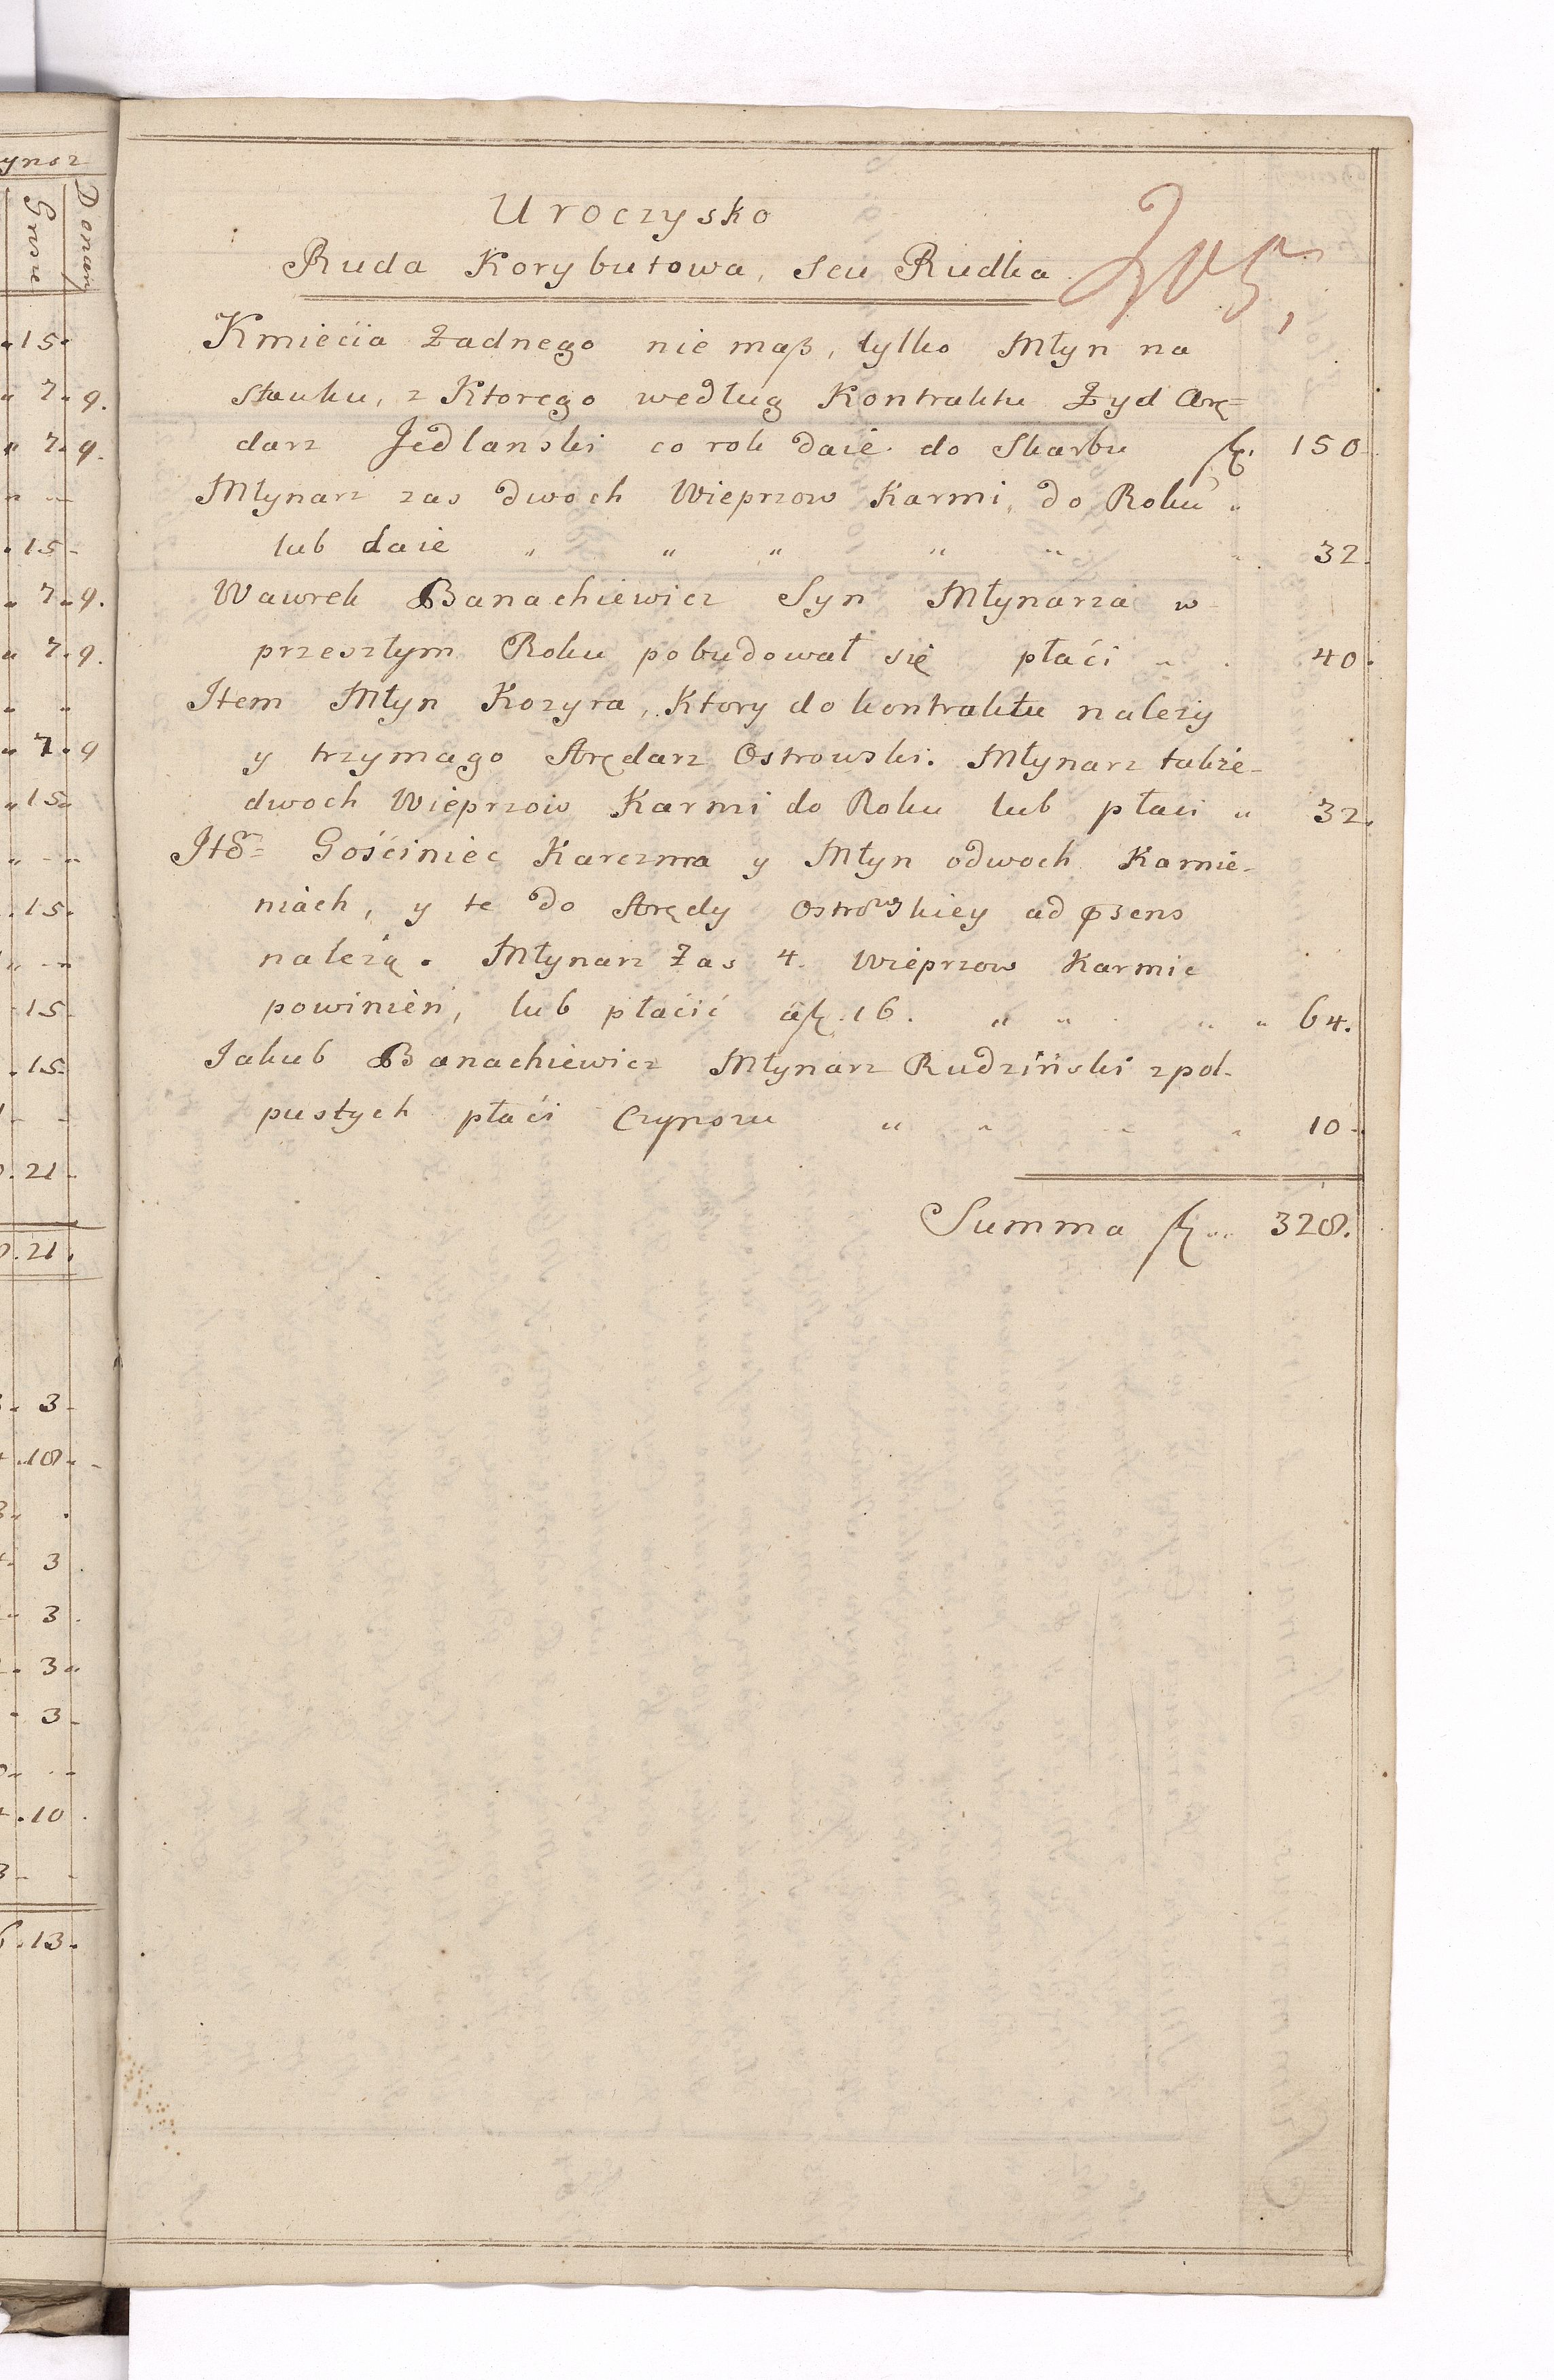 Uroczysko
Ruda Korybutowa, seu Rudka
205,
Kmiecia Żadnego nie maß, tylko Młyn na
stawku, z Ktorego według Kontraktu Żyd Arę=
darz Jedlanski co rok daie do Skarbu fl. 150
Młynarz zas dwoch Wieprzow Karmi, do Roku „
lub daie „ „ „ „ „ „ 32.
Wawrek Banachiewicz Syn Młynarza w
przeszłym Roku pobudował się płaći „ . 40.
Item Młyn Kozyra, Ktory do kontraktu należy
y trzymago Arędarz Ostrowski. Młynarz także-
dwoch Wieprzow Karmi do Roku lub płaci „ 32.
Gośćiniec Karczma y Młyn odwoch Kamie-
niach, y te do Arędy ad
należą. Młynarz Zas 4. Wieprzow Karmic
powinień, lub płaćić afl. 16. „ „ „ „ 64.
Jakub Banachiewicz Młynarz Rudziński zpol-
pustych płaći Czynszu „ „ „ „ 10.
Summa fl „ 328.
ynsz
Grosze
15.
7. 9.
7. 9.
15
7. 9.
7. 9.
7. 9
15
15.
15.
15.
21
21.
3
18
3
3
3
3
10
13.